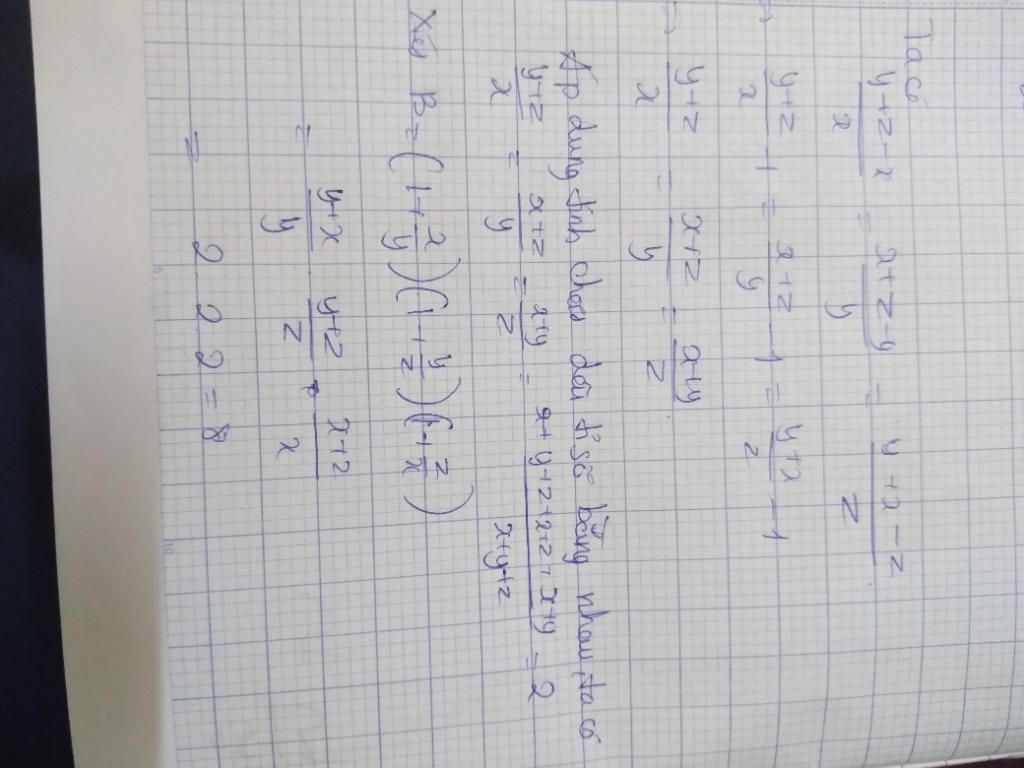 Ta có
(y+z-x)/x = (x+z-y)/y = (y+x-z)/z
(y+z)/x - 1 = (x+z)/y - 1 = (y+x)/z - 1
= (y+z)/x = (x+z)/y = (x+y)/z
Áp dụng tính chất dãy tỉ số bằng nhau, ta có
(y+z)/x = (x+z)/y = (x+y)/z = (x+y+z+x+z+x+y)/(x+y+z) = 2
Xét B = (1+x/y)(1+y/z)(1+z/x)
= (y+x)/y . (y+z)/z . (x+z)/x
= 2 . 2 . 2 = 8